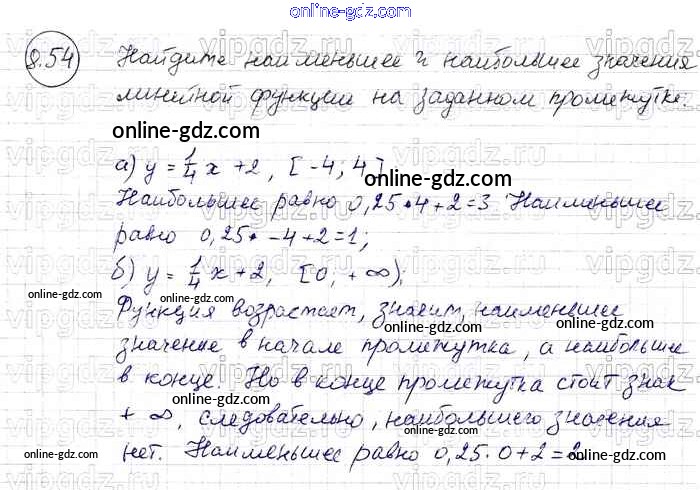 online-gdz.com
8.54 Найдите наименьшее и наибольшее значения
линейной функции на заданном промежутке:
online-gdz.com
а) y = 1/4 x + 2, [-4; 4]
online-gdz.com
Наибольшее равно 0,25•4+2=3 Наименьшее
равно 0,25•-4+2=1;
online-gdz.com
б) y = 1/4 x + 2, [0, +∞);
online-gdz.com online-gdz.com online-gdz.com
Функция возрастает, значит, наименьшее
online-gdz.com
значение в начале промежутка, а наибольшее
online-gdz.com
в конце. Но в конце промежутка стоит знак
online-gdz.com
+ ∞, следовательно, наибольшего значения
online-gdz.com
нет. Наименьшее равно 0,25·0+2=2.
online-gdz.com online-gdz.com